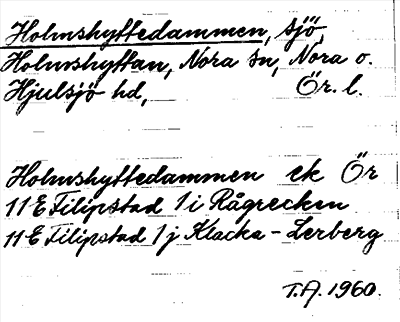 Holmshyttedammen, sjö,
Holmshyttan, Nora sn, Nora o.
Hjulsjö hd, Ör. l.
Holmshyttedammen ek Ör
11 E Filipstad 1 i Rågrecken
11 E Filipstad 1 j Klacka-Lerberg
T.A. 1960.